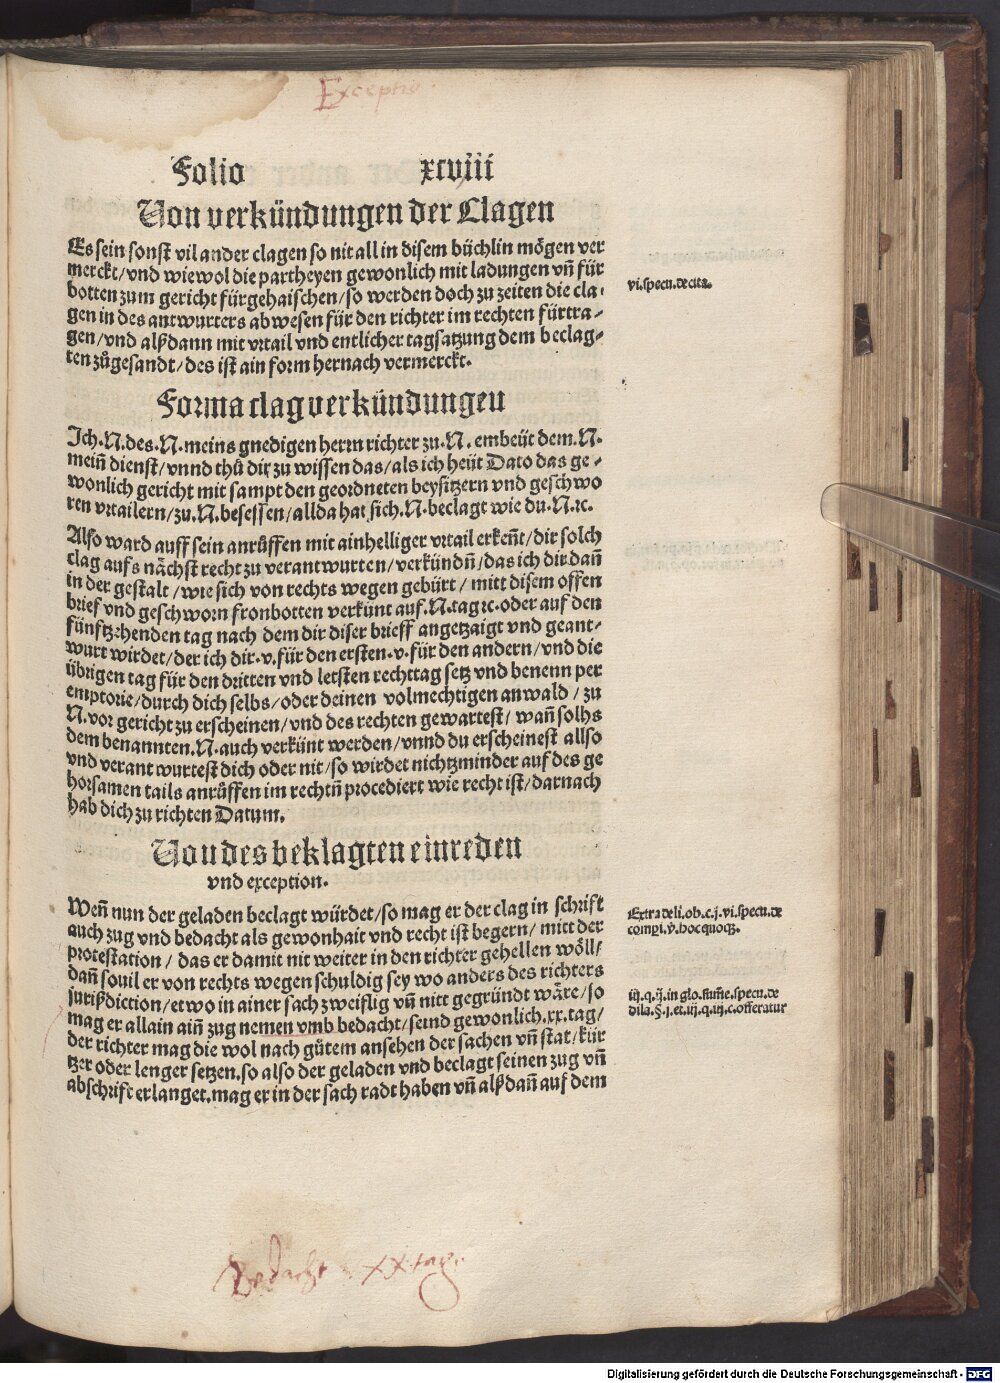 Exceptio
Folio xcviii
Von verkündungen der Clagen
Es sein sonst vil ander clagen so nit all in disem büchlin mögen ver
merckt/vnd wiewol die partheyen gewonlich mit ladungen vñ für
botten zum gericht fürgehaischen/so werden doch zu zeiten die cla-
gen in des antwurters abwesen für den richter im rechten fürtra-
gen/vnd alßdann mit vrtail vnd entlicher tagsatzung dem beclag-
ten zůgesandt/des ist ain form hernach vermerckt.
vi.specu.de cita.
Forma clag verkündungen
Ich.N.des.N.meins gnedigen herrn richter zu.N. embeüt dem.N.
mein̄ dienst/vnnd thů dir zu wissen das/als ich heüt Dato das ge-
wonlich gericht mit sampt den geordneten beysitzern vnd geschwo
ren vrtailern/zu.N.besessen/allda hat sich.N.beclagt wie du.N.ꝛc.
Also ward auff sein anrůffen mit ainhelliger vrtail erken̄t/dir solch
clag aufs nächst recht zu verantwurten/verkündn̄/das ich dir dañ
in der gestalt/wie sich von rechts wegen gebürt/mitt disem offen
brief vnd geschworn fronbotten verkünt auf.N.tag ꝛc.oder auf den
fünftzehenden tag nach dem dir diser brieff angetzaigt vnd geant-
wurt wirdet/der ich dir.v.für den ersten.v.für den andern/vnd die
übrigen tag für den dritten vnd letsten rechttag setz vnd benenn per
emptorie/durch dich selbs/oder deinen volmechtigen anwald/zu
N.vor gericht zu erscheinen/vnd des rechten gewartest/wañ solhs
dem benannten.N.auch verkünt werden/vnnd du erscheinest allso
vnd verantwurtest dich oder nit/so wirdet nichtzminder auf des ge
horsamen tails anrůffen im rechtn̄ procediert wie recht ist/darnach
hab dich zu richten Datum.
Von des beklagten einreden
vnd exception.
Wen̄ nun der geladen beclagt würdet/so mag er der clag in schrift
auch zug vnd bedacht als gewonhait vnd recht ist begern/mitt der
protestation/das er damit nit weiter in den richter gehellen wöll/
dañ souil er von rechts wegen schuldig sey wo anders des richters
jurißdiction/etwo in ainer sach zweiflig vñ nitt gegründt wäre/so
mag er allain ain̄ zug nemen vmb bedacht/seind gewonlich.xx.tag/
der richter mag die wol nach gůtem ansehen der sachen vñ stat/kür
tzer oder lenger setzen.so also der geladen vnd beclagt seinen zug vñ
abschrift erlanget.mag er in der sach radt haben vñ alßdañ auf dem
Extra de li.ob.c.j.vi.specu.de
hoc quoqꝫ.
iij.q.ij.in glo.specu.de
dila.§.j.et.iij.q.iij.c.offeratur
Bedacht xx tag.
Digitalisierung gefördert durch die Deutsche Forschungsgemeinschaft - DFG